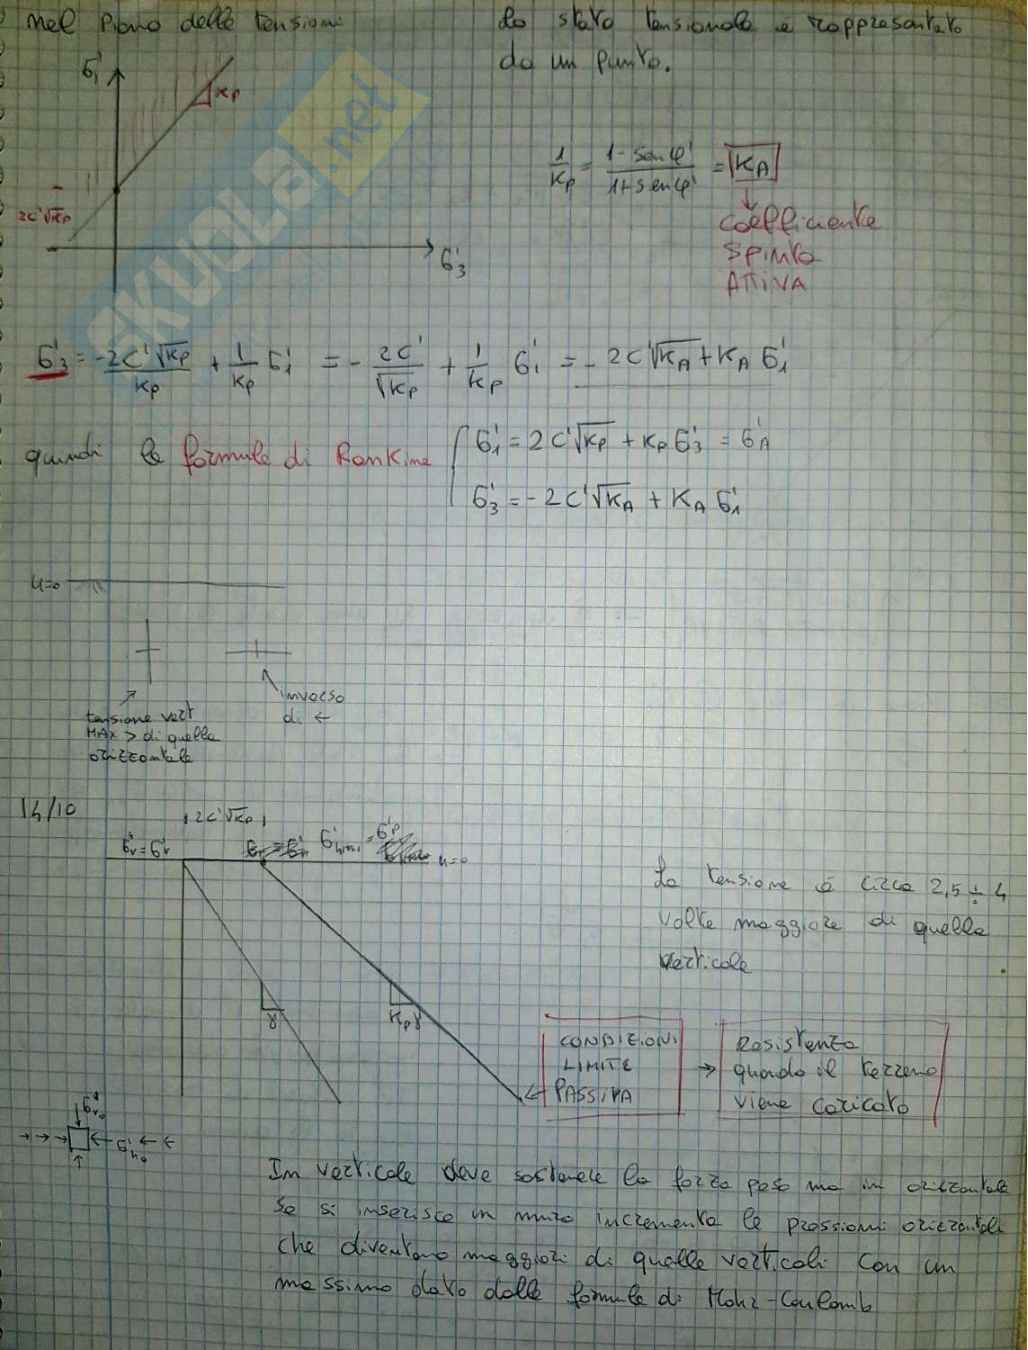 nel piano delle tensioni
lo stato tensionale è rappresentato
da un punto.
σ'₁
Kp
2c'√Kp
σ'₃
1/Kp = (1 - senφ')/(1 + senφ') = KA
coefficiente
SPINTA
ATTIVA
SKUOLA.net
σ'₃ = -2c'√Kp/Kp + 1/Kp σ'₁ = - 2c'/√Kp + 1/Kp σ'₁ = - 2c'√KA + KA σ'₁
quindi le formule di Rankine
σ'₁ = 2c'√Kp + Kp σ'₃ = σ'A
σ'₃ = - 2c'√KA + KA σ'₁
u=0
inverso
di ←
tensione vert
MAX > di quella
orizzontale
14/10
2c'√Kp
σ'v = σ'v
u=0
La tensione è circa 2,5 ÷ 4
volte maggiore di quella
verticale
γ
Kpγ
CONDIZIONI
LIMITE
PASSIVA
→
Resistenza
quando il terreno
viene caricato
σ'v₀
σ'h₀
In verticale deve sostenere la forza peso ma in orizzontale
se si inserisce un muro incrementa le pressioni orizzontali
che diventano maggiori di quelle verticali con un
massimo dato dalle formule di Mohr-Coulomb